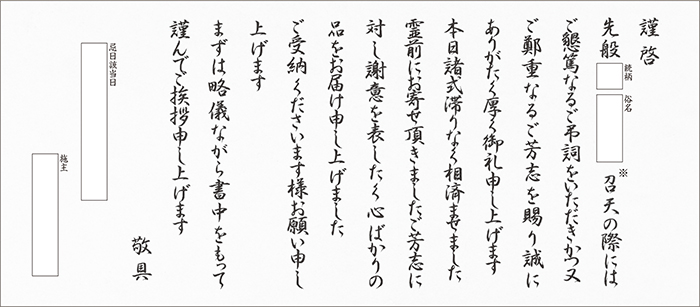 謹啓
先般 続柄 俗名 ※召天の際には
ご懇篤なるご弔詞をいただきかつ又
ご鄭重なるご芳志を賜り誠に
ありがたく厚く御礼申し上げます
本日諸式滞りなく相済ませました
霊前にお寄せ頂きましたご芳志に
対し謝意を表したく心ばかりの
品をお届け申し上げました
ご受納くださいます様お願い申し
上げます
まずは略儀ながら書中をもって
謹んでご挨拶申し上げます
敬具
忌日該当日
施主